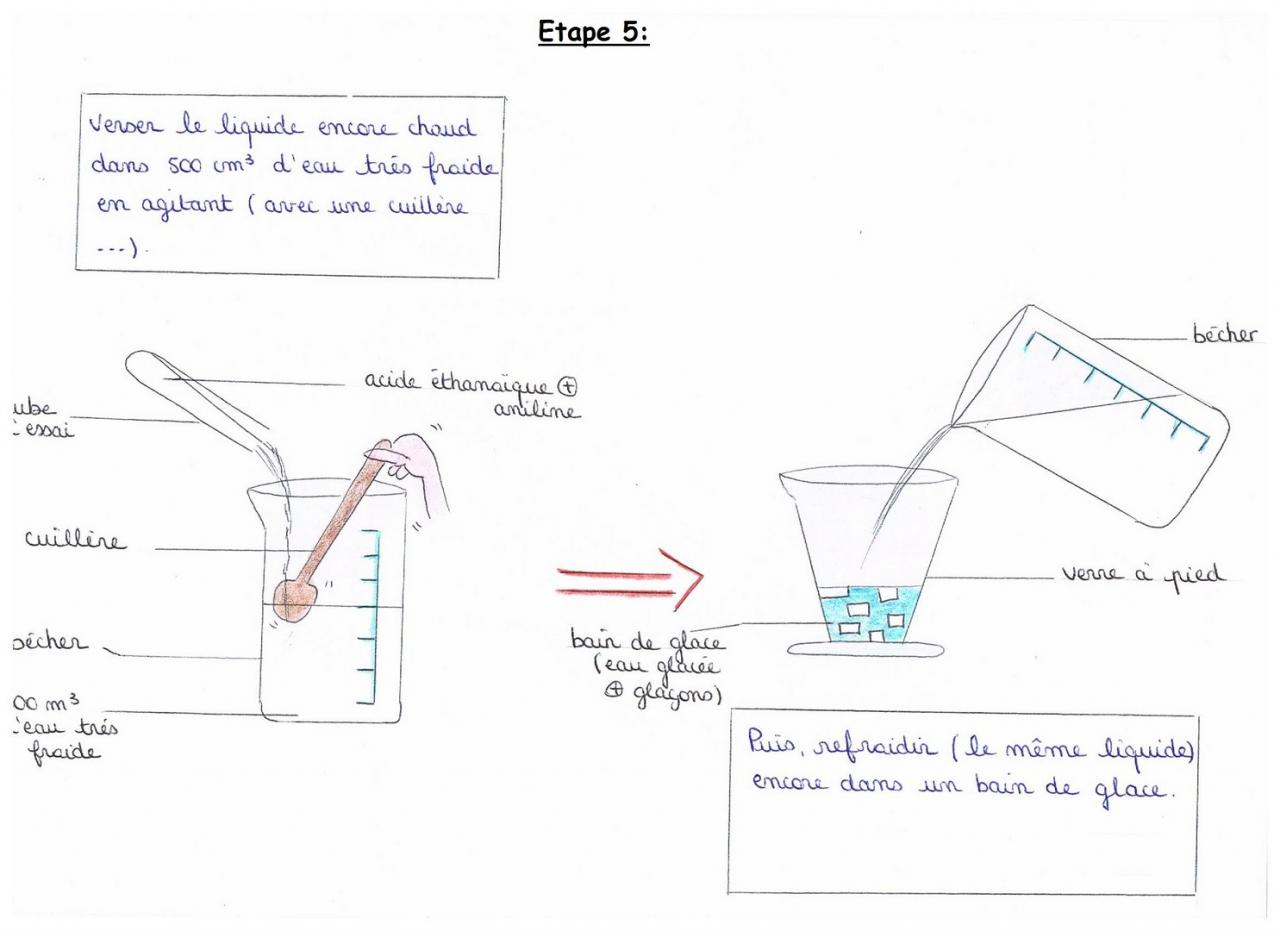 Etape 5:
Verser le liquide encore chaud
dans 500 cm³ d'eau trés fraide
en agitant (avec une cuillère
...).
acide éthanoïque ⊕
aniline
ube
essai
cuillère
bécher
00 m³
'eau trés
fraide
bécher
verre à pied
bain de glace
(eau glacée
⊕ glaçons)
Puis, refraidir (le même liquide)
encore dans un bain de glace.